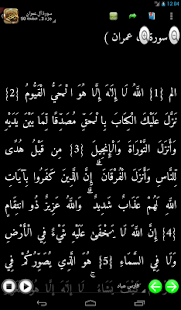 12:04
سورة آل عمران
سورة آل عمران )
الم {1} اللَّهُ لَا إِلَٰهَ إِلَّا هُوَ الْحَيُّ الْقَيُّومُ {2}
نَزَّلَ عَلَيْكَ الْكِتَابَ بِالْحَقِّ مُصَدِّقًا لِّمَا بَيْنَ يَدَيْهِ
وَأَنزَلَ التَّوْرَاةَ وَالْإِنجِيلَ {3} مِن قَبْلُ هُدًى
لِّلنَّاسِ وَأَنزَلَ الْفُرْقَانَ ۗ إِنَّ الَّذِينَ كَفَرُوا بِآيَاتِ
اللَّهِ لَهُمْ عَذَابٌ شَدِيدٌ ۗ وَاللَّهُ عَزِيزٌ ذُو انتِقَامٍ
{4} إِنَّ اللَّهَ لَا يَخْفَىٰ عَلَيْهِ شَيْءٌ فِي الْأَرْضِ
وَلَا فِي السَّمَاءِ {5} هُوَ الَّذِي يُصَوِّرُكُمْ فِي